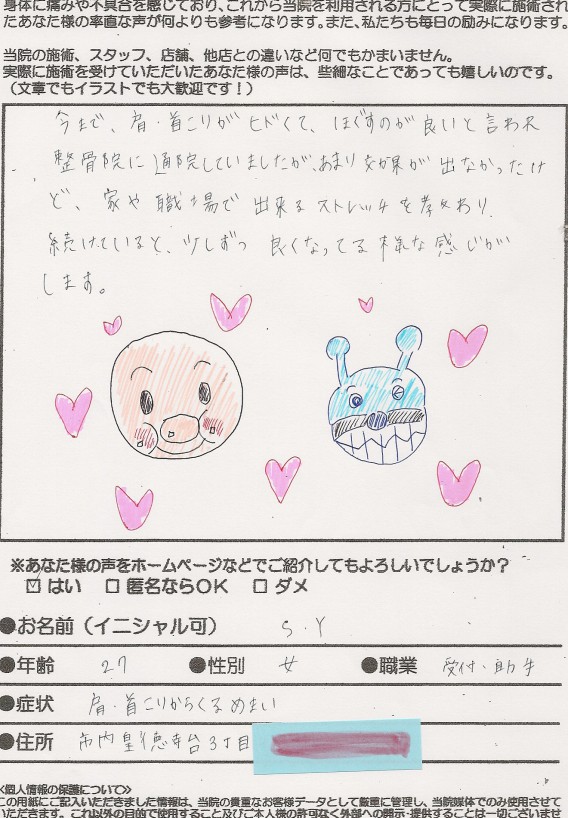 身体に痛みや不具合を感じており、これから当院を利用される方にとって実際に施術され
たあなた様の率直な声が何よりも参考になります。また、私たちも毎日の励みになります。
当院の施術、スタッフ、店舗、他店との違いなど何でもかまいません。
実際に施術を受けていただいたあなた様の声は、些細なことであっても嬉しいのです。
（文章でもイラストでも大歓迎です！）
今まで、肩・首こりがヒドくて、ほぐすのが良いと言われ
整骨院に通院していましたが、あまり効果が出なかったけ
ど、家や職場で出来るストレッチを教わり
続けていると、少しずつ良くなってる様な感じが
します。
※あなた様の声をホームページなどでご紹介してもよろしいでしょうか？
☑ はい □ 匿名ならOK □ ダメ
●お名前（イニシャル可） S・Y
●年齢 27 ●性別 女 ●職業 受付・助手
●症状 肩・首こりからくるめまい
●住所 市内皇徳寺台3丁目
<個人情報の保護について>
この用紙にご記入いただきました情報は、当院の貴重なお客様データとして厳重に管理し、当院媒体でのみ使用させて
いただきます。これ以外の目的で使用すること及びご本人様の許可なく外部への開示・提供することは一切ございませ